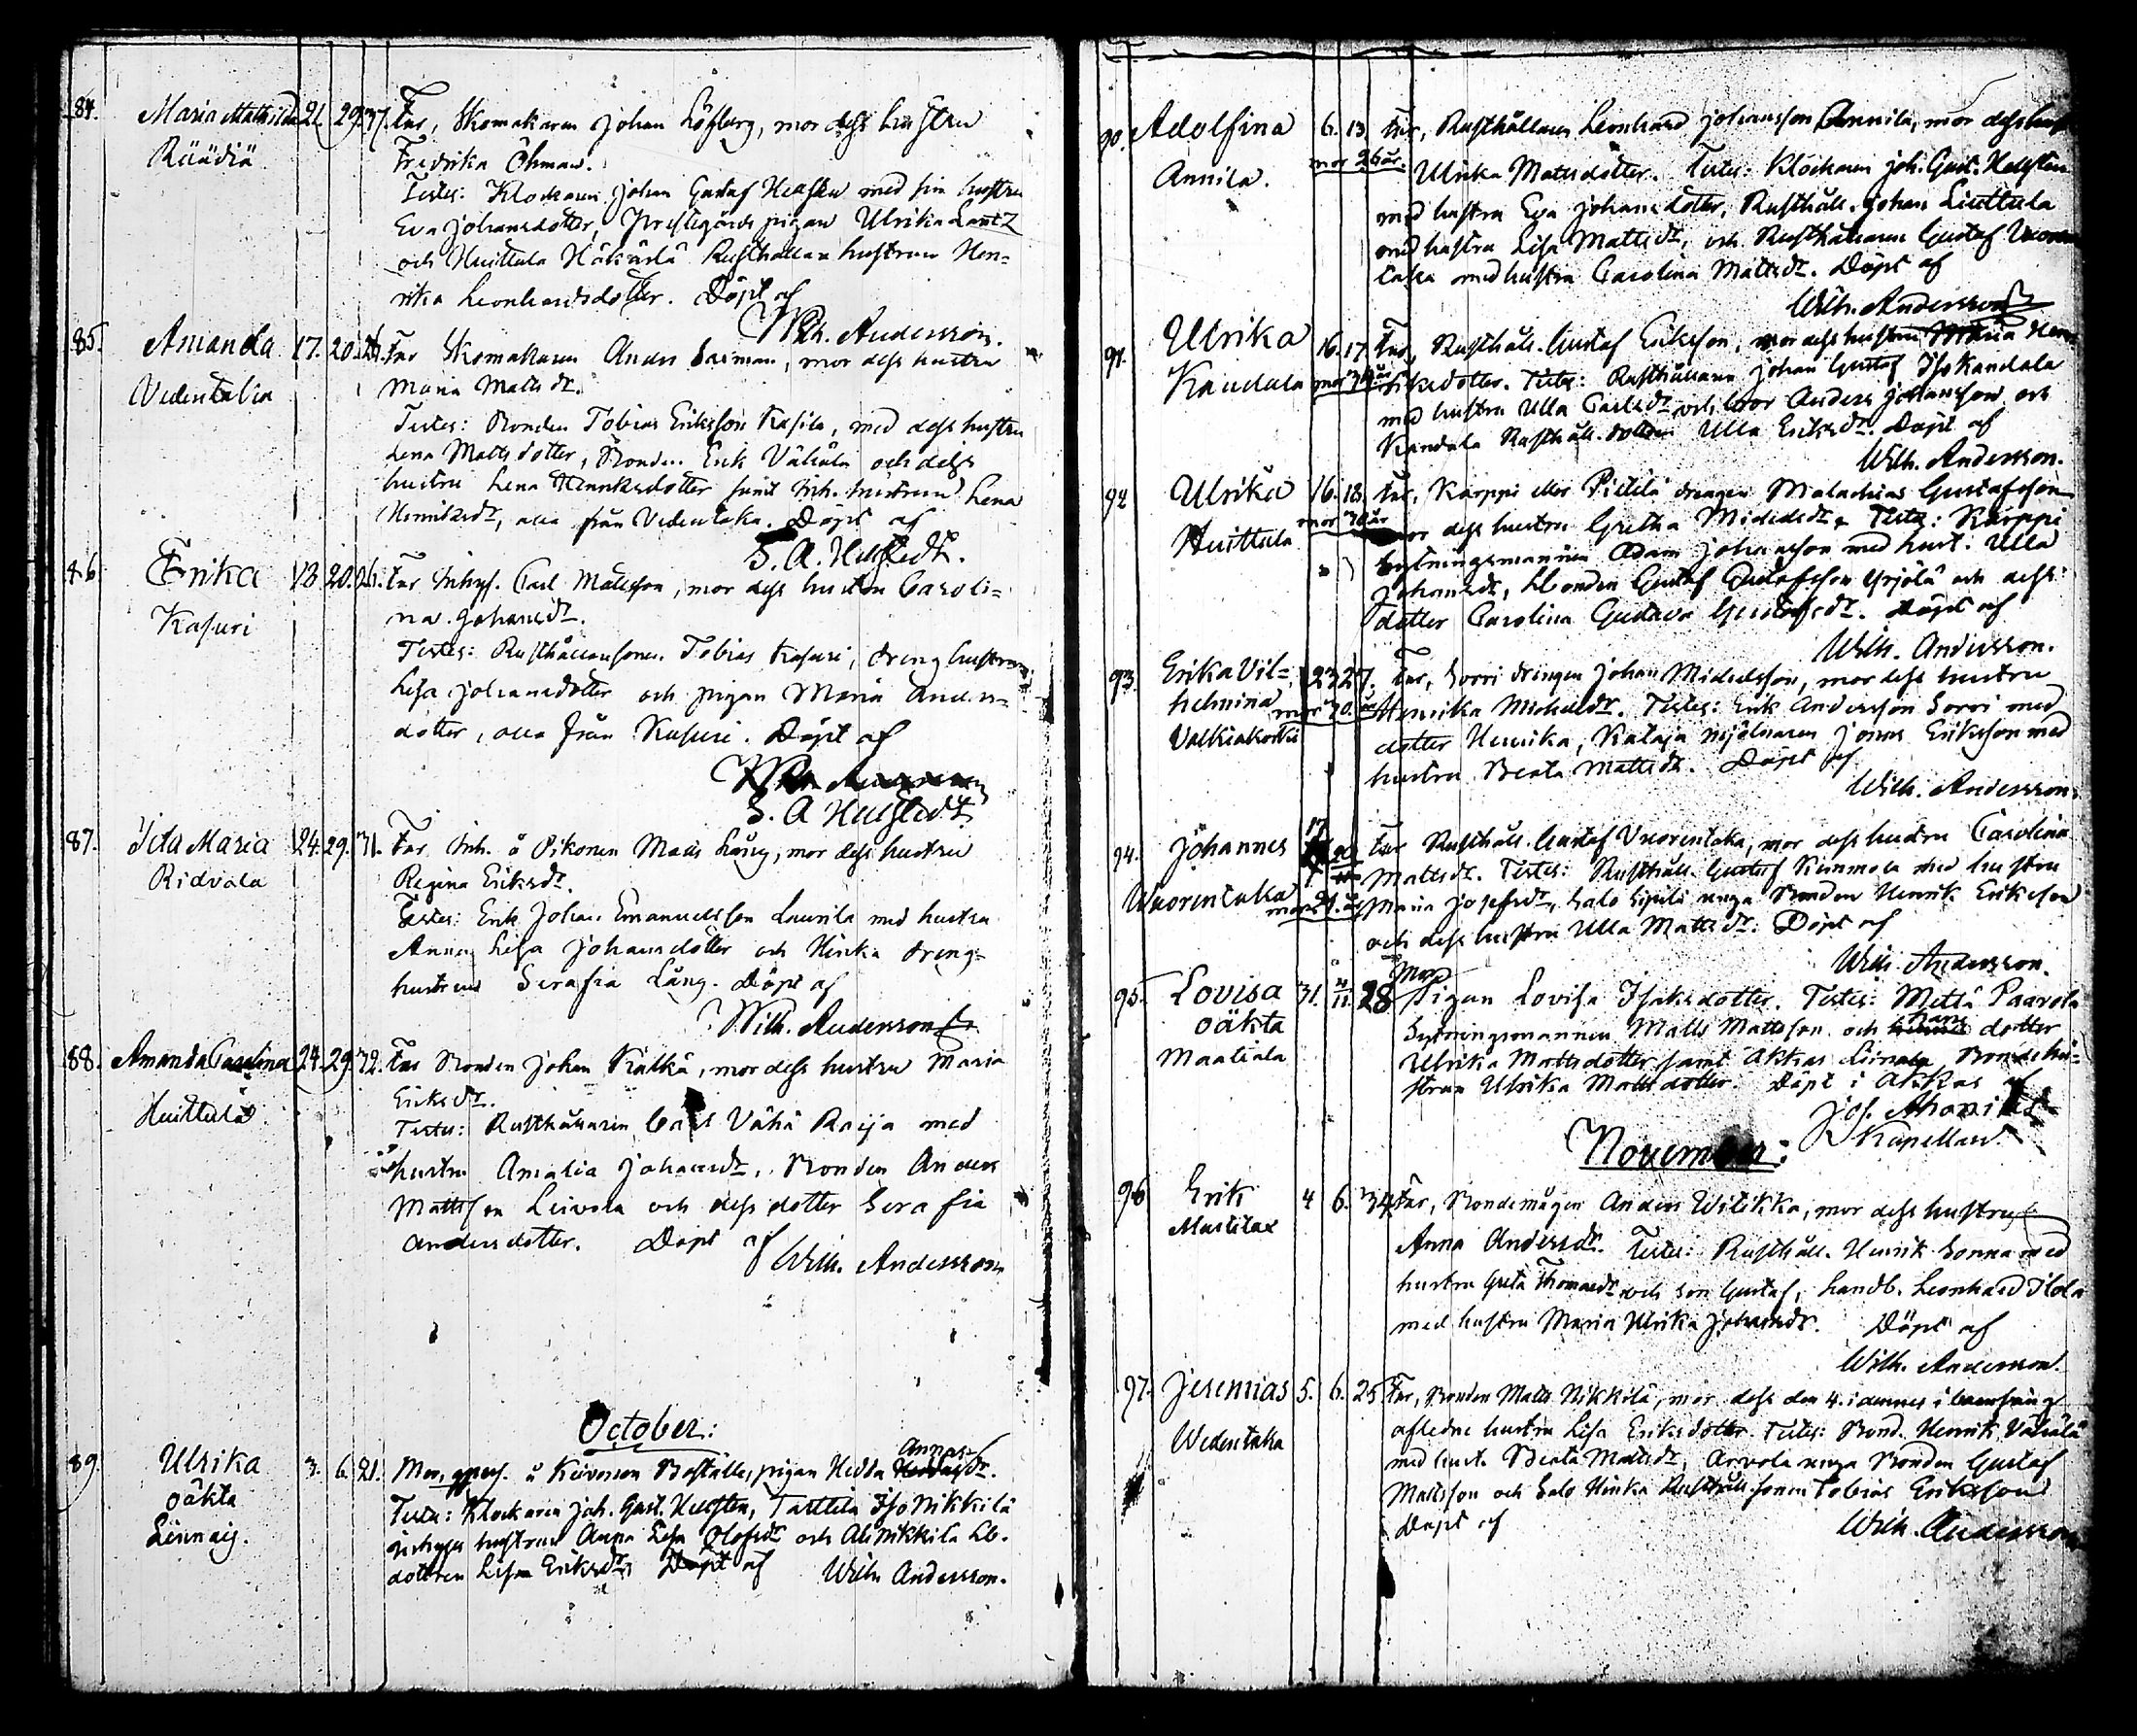 84. Maria Mathilda 21. 29. 37. Far, Skomakaren Johan Löfberg, mor dess hustru
Räädiä Fredrika Öhman.
Testes: Klockaren Johan Gustaf Hellsten med sin hustru
Eva Johansdotter, Prestegårds pigan Ulrika Lantz
och Huittula Häkärlä Rusthållare hustrun Hen=
rika Leonhardsdotter. Döpt af
Wilh. Andersson.
85. Amanda 17. 20. Far Skomakaren Anders Saxman, mor dess hustru
Vedentaka Maria Matts dr.
Testes: Bonden Tobias Eriksson Kasila, med dess hustru
Lena Matts dotter, Bonden Erik Vähälä och dess
hustru Lena Henriksdotter samt Inh. hustrun Lena
Henriksdr, alla från Vedentaka. Döpt af
S. A. Hellstedt.
86. Erika 13 20. 26. Far Inhys. Carl Mattsson, mor dess hustru Caroli=
Kasuri na Johansdr.
Testes: Rusthållaresonen Tobias Kasuri, dreng hustrun
Lisa Johansdotter och pigan Maria Anders=
dotter, alla från Kasuri. Döpt af
S. A Hellstedt
87. Ita Maria 24. 29. 31. Far Inh. å Pikonen Matts Lång, mor dess hustru
Ridvala Regina Eriksdr.
Testes: Erik Johan Emanuelsson Laurila med hustru
Anna Lisa Johansdotter och Hinka dreng=
hustrun Serafia Lång. Döpt af
Wilh. Andersson
88. Amanda Carolina 24. 29. 32. Far Bonden Johan Kälkä, mor dess hustru Maria
Huittula Eriksdr.
Testes: Rusthållaren Carl Vähä Raija med
hustru Amalia Johansdr. Bonden Anders
Mattsson Leivola och dess dotter Serafia
Andersdotter. Döpt af
Wilh. Andersson
October:
89. Ulrika 3. 6. 21. Mor, å Boställe, pigan Hedda Annasdr.
oäkta Testes: Klockaren Joh. Gust. Hellsten, Tarttila Iso Nikkilä
hustrun Anna Lisa Olofsdr och Ali Nikkilä Lb.
dottren Lisa Eriksdr. Döpt af Wilh Andersson.
90. Adolfina 6. 13. Far, Rusthållaren Leonhard Johansson Annila, mor dess hust
Annila. mor 26 år. Ulrika Mattsdotter. Testes: Klockaren Joh. Gust. Hellsten
med hustru Eva Johansdotter, Rusthåll. Johan Liuttula
med hustru Lisa Mattsdr, och Rusthållaren Gustaf Vuoren
taka med hustru Carolina Mattsdr. Döpt af
Wilh. Andersson
91. Ulrika 16. 17. Far, Rusthåll. Gustaf Eriksson, mor dess hustru Maria Hen
Kaudala mor år riksdotter. Testes: Rusthållaren Johan Gustaf Iso Kandala
med hustru Ulla Carlsdr och bror Anders Johansson och
Kandala Rusthåll. dottren Ulla Eriksdr. Döpt af
Wilh. Andersson.
92 Ulrika 16. 18. Far, Karppi eller Pietilä drengen Malachias Gustafsson
Huittula mor år mor dess hustru Gretha Michelsdr. Testes: Karppi
Sytningsmannen Adam Johansson med hust. Ulla
Johansdr, Bonden Gustaf Gustafsson Yrjölä och dess
dotter Carolina Gustava Gustafsdr. Döpt af
Wilh. Andersson.
93. Erika Vil= 23 27. Far, Sorri drengen Johan Michelsson, mor dess hustru
helmina mor 30. år Henrika Michelsdr. Testes: Erik Andersson Sorri med
Valkiakoski dotter Henrika, Kataja mjölnaren Jonas Eriksson med
hustru Beata Mattsdr. Döpt af
Wilh. Andersson.
94. Johannes 17 Far Rusthåll. Gustaf Vuorentaka, mor dess hustru Carolina
Mattsdr. Testes: Rusthåll. Gustaf Kinmola med hustru
Wuorentaka Maria Josefsdr, Salo unga Bonden Henrik Eriksson
och dess hustru Ulla Mattsdr. Döpt af
Wilh Andersson.
95. Lovisa 31. 11. 28 Mor Pigan Lovisa Isaksdotter. Testes: Metsä Paavola
oäkta Sytningsmannen Matts Mattsson och hans dotter
Maatiala Ulrika Mattsdotter samt Akkas Bondehu=
strun Ulrika Mattsdotter. Döpt i Akkas af
Kapellan.
November:
96 Erik 4 6. 34 Far, Bondemågen Anders Wilikka, mor dess hustru
Anna Andersdr. Testes: Rusthåll. Henrik Sonna med
hustru Greta Thomasdr och son Gustaf, Landb. Leonhard Ilola
med hustru Maria Ulrika Johansdr. Döpt af
Wilh. Andersson.
97. Jeremias 5. 6. 25 Far, Bonden Matts Nikkilä, mor dess den 4. i dennes i barnsäng
Wedentaka aflidne hustru Lisa Eriksdotter. Testes: Bond. Henrik Vähälä
med hust. Beata Mattsdr, Arvola unga Bonden Gustaf
Mattsson och Salo Hinka Rusthåll. sonen Tobias Eriksson
Döpt af Wilh. Andersson